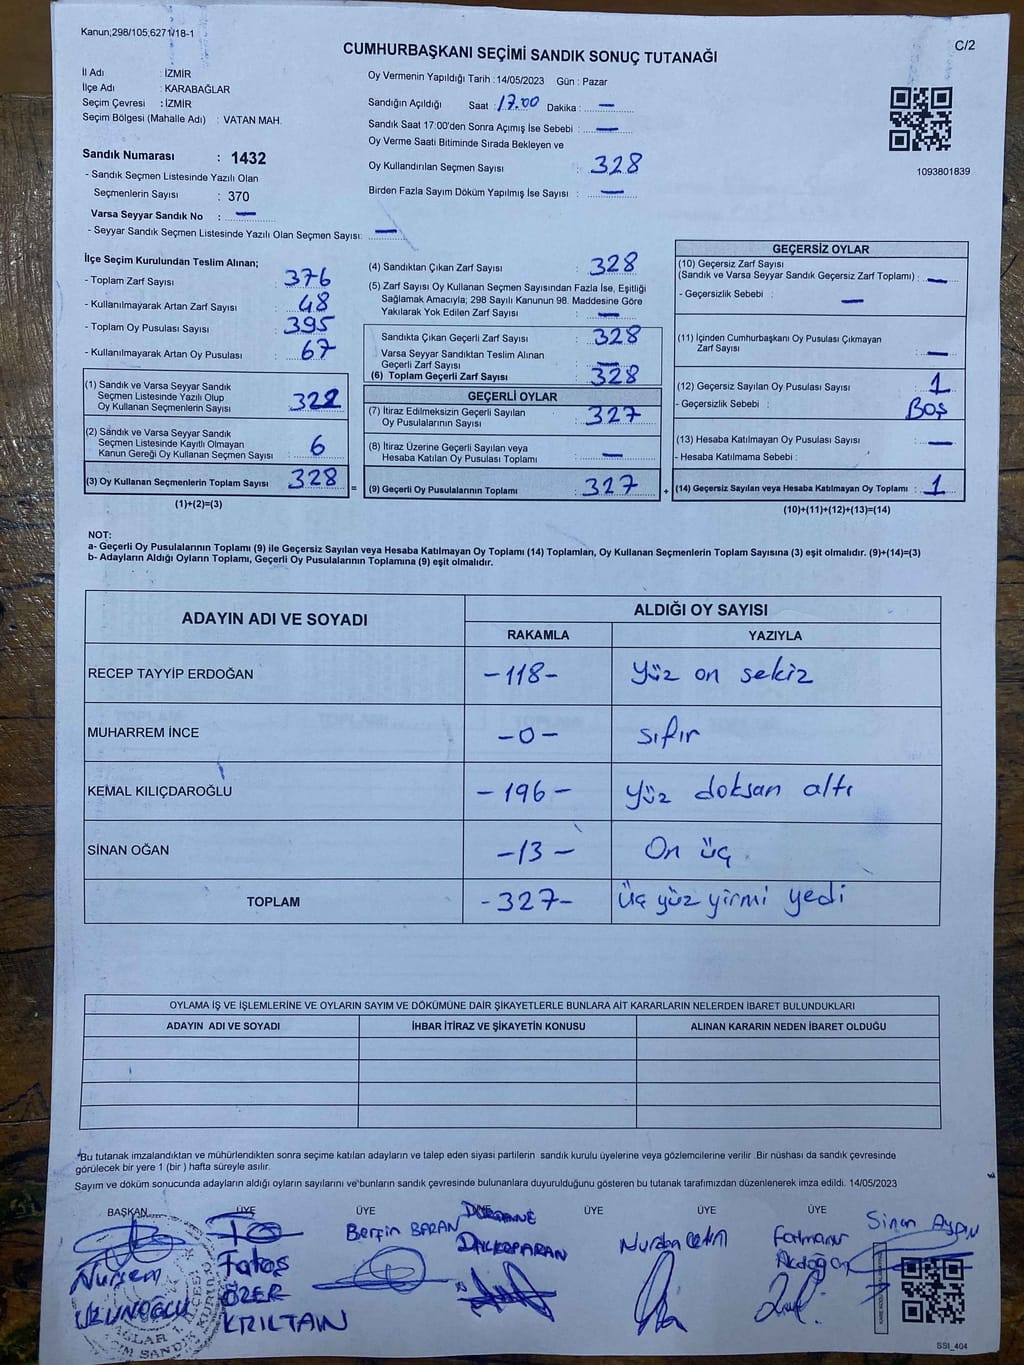 Kanun;298/105,6271/18-1
C/2
CUMHURBAŞKANI SEÇİMİ SANDIK SONUÇ TUTANAĞI
İl Adı : İZMİR
İlçe Adı : KARABAĞLAR
Seçim Çevresi : İZMİR
Seçim Bölgesi (Mahalle Adı) : VATAN MAH.
Sandık Numarası : 1432
- Sandık Seçmen Listesinde Yazılı Olan
Seçmenlerin Sayısı : 370
Varsa Seyyar Sandık No : —
- Seyyar Sandık Seçmen Listesinde Yazılı Olan Seçmen Sayısı: —
Oy Vermenin Yapıldığı Tarih : 14/05/2023 Gün : Pazar
Sandığın Açıldığı Saat : 17.00 Dakika : —
Sandık Saat 17:00'den Sonra Açımış İse Sebebi : —
Oy Verme Saati Bitiminde Sırada Bekleyen ve
Oy Kullandırılan Seçmen Sayısı : 328
Birden Fazla Sayım Döküm Yapılmış İse Sayısı : —
1093801839
İlçe Seçim Kurulundan Teslim Alınan;
- Toplam Zarf Sayısı : 376
- Kullanılmayarak Artan Zarf Sayısı : 48
- Toplam Oy Pusulası Sayısı : 395
- Kullanılmayarak Artan Oy Pusulası : 67
(1) Sandık ve Varsa Seyyar Sandık
Seçmen Listesinde Yazılı Olup
Oy Kullanan Seçmenlerin Sayısı : 322
(2) Sandık ve Varsa Seyyar Sandık
Seçmen Listesinde Kayıtlı Olmayan
Kanun Gereği Oy Kullanan Seçmen Sayısı : 6
(3) Oy Kullanan Seçmenlerin Toplam Sayısı : 328
(1)+(2)=(3)
(4) Sandıktan Çıkan Zarf Sayısı : 328
(5) Zarf Sayısı Oy Kullanan Seçmen Sayısından Fazla İse, Eşitliği
Sağlamak Amacıyla; 298 Sayılı Kanunun 98. Maddesine Göre
Yakılarak Yok Edilen Zarf Sayısı : —
Sandıkta Çıkan Geçerli Zarf Sayısı : 328
Varsa Seyyar Sandıktan Teslim Alınan
Geçerli Zarf Sayısı : —
(6) Toplam Geçerli Zarf Sayısı : 328
GEÇERLİ OYLAR
(7) İtiraz Edilmeksizin Geçerli Sayılan
Oy Pusulalarının Sayısı : 327
(8) İtiraz Üzerine Geçerli Sayılan veya
Hesaba Katılan Oy Pusulası Toplamı : —
= (9) Geçerli Oy Pusulalarının Toplamı : 327 +
GEÇERSİZ OYLAR
(10) Geçersiz Zarf Sayısı
(Sandık ve Varsa Seyyar Sandık Geçersiz Zarf Toplamı) : —
- Geçersizlik Sebebi : —
(11) İçinden Cumhurbaşkanı Oy Pusulası Çıkmayan
Zarf Sayısı : —
(12) Geçersiz Sayılan Oy Pusulası Sayısı : 1
- Geçersizlik Sebebi : BOŞ
(13) Hesaba Katılmayan Oy Pusulası Sayısı : —
- Hesaba Katılmama Sebebi :
(14) Geçersiz Sayılan veya Hesaba Katılmayan Oy Toplamı : 1
(10)+(11)+(12)+(13)=(14)
NOT:
a- Geçerli Oy Pusulalarının Toplamı (9) ile Geçersiz Sayılan veya Hesaba Katılmayan Oy Toplamı (14) Toplamları, Oy Kullanan Seçmenlerin Toplam Sayısına (3) eşit olmalıdır. (9)+(14)=(3)
b- Adayların Aldığı Oyların Toplamı, Geçerli Oy Pusulalarının Toplamına (9) eşit olmalıdır.
ADAYIN ADI VE SOYADI ALDIĞI OY SAYISI
RAKAMLA YAZIYLA
RECEP TAYYİP ERDOĞAN -118- Yüz on sekiz
MUHARREM İNCE -0- sıfır
KEMAL KILIÇDAROĞLU -196- Yüz doksan altı
SİNAN OĞAN -13- On üç
TOPLAM -327- Üç yüz yirmi yedi
OYLAMA İŞ VE İŞLEMLERİNE VE OYLARIN SAYIM VE DÖKÜMÜNE DAİR ŞİKAYETLERLE BUNLARA AİT KARARLARIN NELERDEN İBARET BULUNDUKLARI
ADAYIN ADI VE SOYADI İHBAR İTİRAZ VE ŞİKAYETİN KONUSU ALINAN KARARIN NEDEN İBARET OLDUĞU
*Bu tutanak imzalandıktan ve mühürlendikten sonra seçime katılan adayların ve talep eden siyasi partilerin sandık kurulu üyelerine veya gözlemcilerine verilir. Bir nüshası da sandık çevresinde
görülecek bir yere 1 (bir) hafta süreyle asılır.
Sayım ve döküm sonucunda adayların aldığı oyların sayılarını ve bunların sandık çevresinde bulunanlara duyurulduğunu gösteren bu tutanak tarafımızdan düzenlenerek imza edildi. 14/05/2023
BAŞKAN ÜYE ÜYE ÜYE ÜYE ÜYE ÜYE
Nursem UZUNOĞLU
Fatoş ÖZER
Berfin BARAN
DALKOPARAN
Nurdan Çetin
Fatmanur Akdoğan
Sinan Aydın
SSI_404